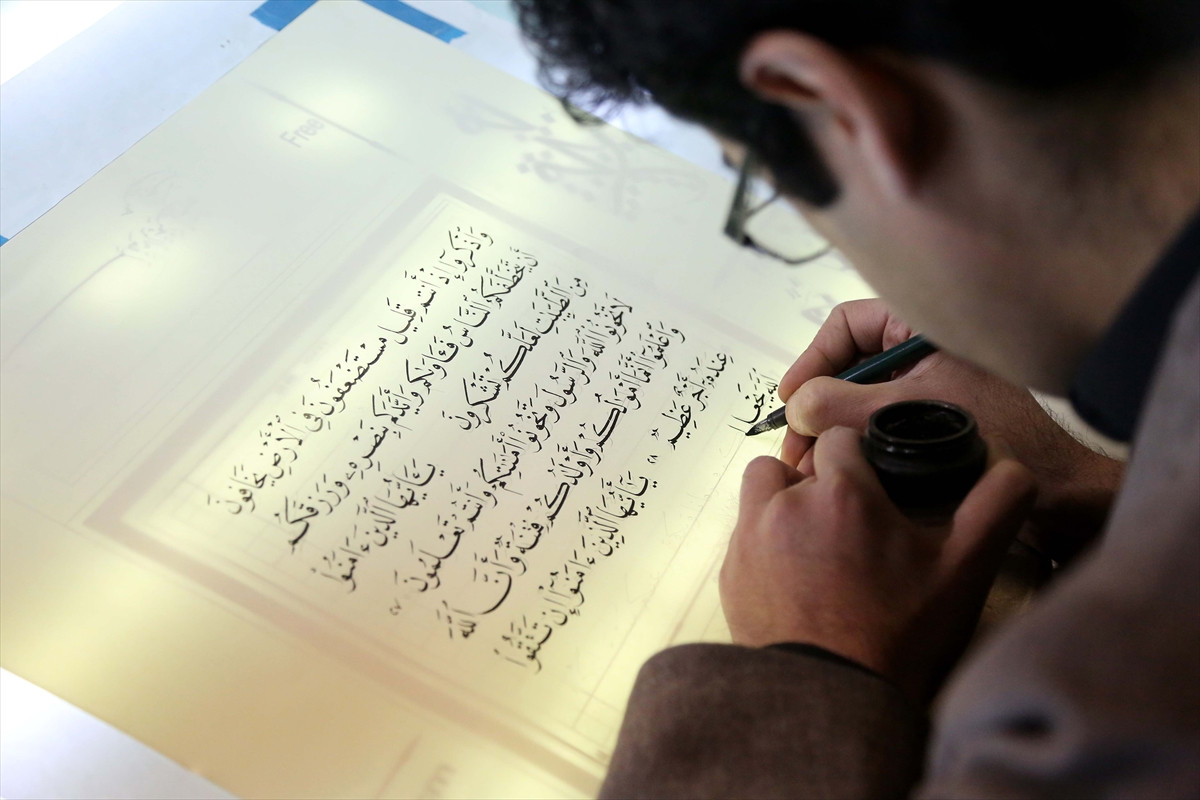 Free
وَٱذْكُرُوٓا۟ إِذْ أَنتُمْ قَلِيلٌ مُّسْتَضْعَفُونَ فِى ٱلْأَرْضِ تَخَافُونَ
أَن يَتَخَطَّفَكُمُ ٱلنَّاسُ فَـَٔاوَىٰكُمْ وَأَيَّدَكُم بِنَصْرِهِۦ وَرَزَقَكُم
مِّنَ ٱلطَّيِّبَٰتِ لَعَلَّكُمْ تَشْكُرُونَ يَٰٓأَيُّهَا ٱلَّذِينَ ءَامَنُوا۟
لَا تَخُونُوا۟ ٱللَّهَ وَٱلرَّسُولَ وَتَخُونُوٓا۟ أَمَٰنَٰتِكُمْ وَأَنتُمْ تَعْلَمُونَ ٢٧
وَٱعْلَمُوٓا۟ أَنَّمَآ أَمْوَٰلُكُمْ وَأَوْلَٰدُكُمْ فِتْنَةٌ وَأَنَّ ٱللَّهَ
عِندَهُۥٓ أَجْرٌ عَظِيمٌ ٢٨ يَٰٓأَيُّهَا ٱلَّذِينَ ءَامَنُوٓا۟ إِن تَتَّقُوا۟
ٱللَّهَ يَجْعَل